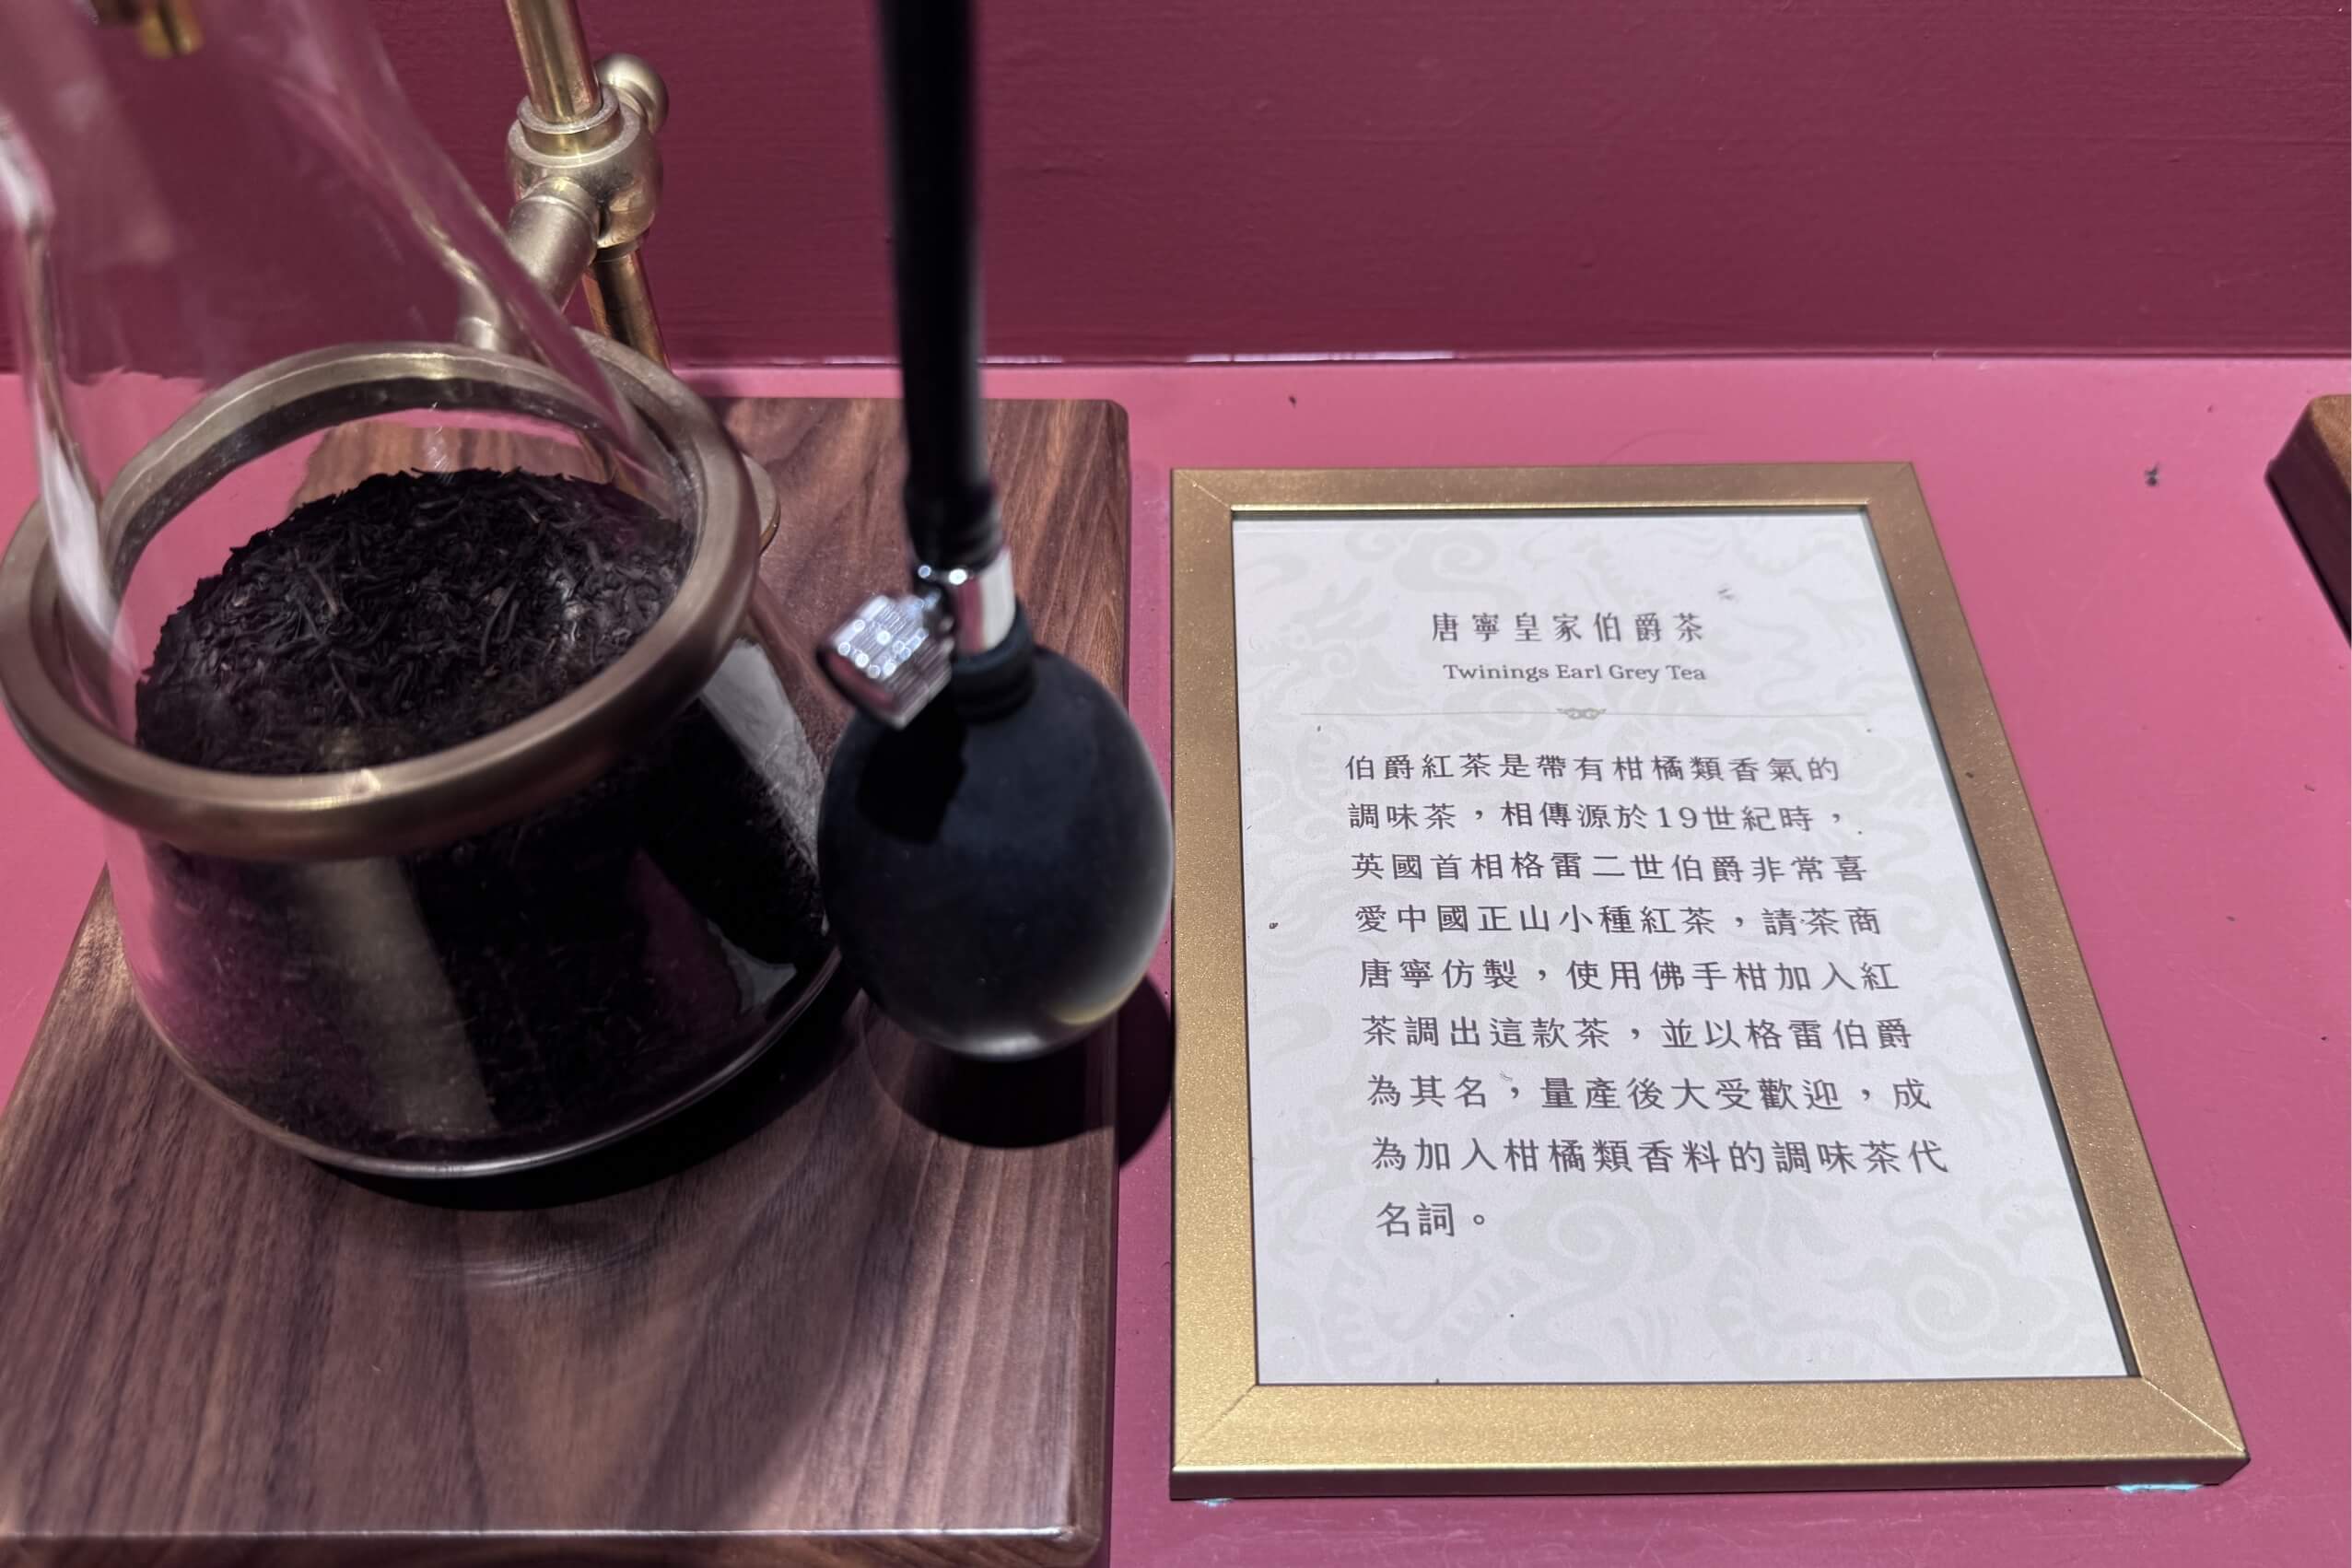 唐寧皇家伯爵茶
Twinings Earl Grey Tea
伯爵紅茶是帶有柑橘類香氣的
調味茶，相傳源於19世紀時，
英國首相格雷二世伯爵非常喜
愛中國正山小種紅茶，請茶商
唐寧仿製，使用佛手柑加入紅
茶調出這款茶，並以格雷伯爵
為其名，量產後大受歡迎，成
為加入柑橘類香料的調味茶代
名詞。